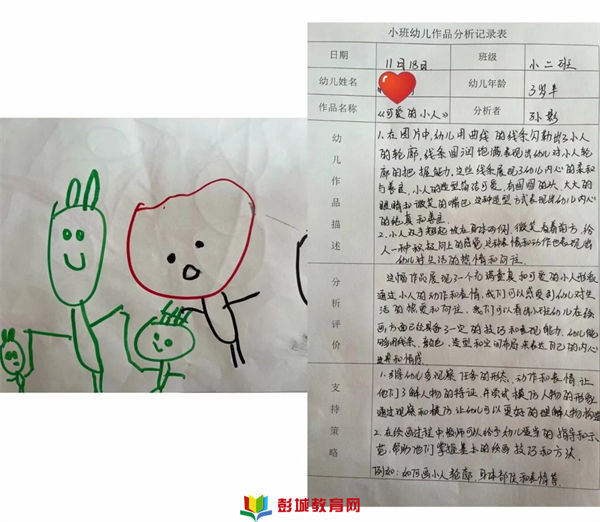 小班幼儿作品分析记录表
日期 11月18日 班级 小二班
幼儿姓名 幼儿年龄 3岁半
作品名称 《可爱的小人》 分析者 孙影
幼儿作品描述
1.在图片中,幼儿用曲线的线条勾勒出了小人
的轮廓,线条圆润饱满,表现出幼儿对小人轮
廓的把握能力,这些线条展现了幼儿内心的柔和
与善良,小人的造型简洁可爱,有圆圆的头,大大的
眼睛和微笑的嘴巴,这种造型方式表现出幼儿内心
的纯真和善良.
2.小人双手翘起放在身体两侧,微笑看着前方,给
人一种积极向上的感觉,这种表情和动作也表现出
幼儿对生活的热情和向往.
分析评价
这幅作品展现了一个充满童真和可爱的小人形象
通过小人的动作和表情,我们可以感受到幼儿对生
活的热爱和向往,我们可以看到小班幼儿在绘
画方面已经具备了一定的技巧和表现能力,幼儿能
够用线条、颜色、造型和空间布局来表达自己的内心
世界和情感
支持策略
1.引导幼儿多观察人物的形态、动作和表情,让
他们了解人物的特征,并尝试模仿人物的形象
通过观察和模仿让幼儿可以更好的理解人物构造
2.在绘画过程中教师可以给予幼儿适当的指导和示
范,帮助他们掌握基本的绘画技巧和方法.
例如:如何画小人轮廓、身体部位和表情等
彭城教育网